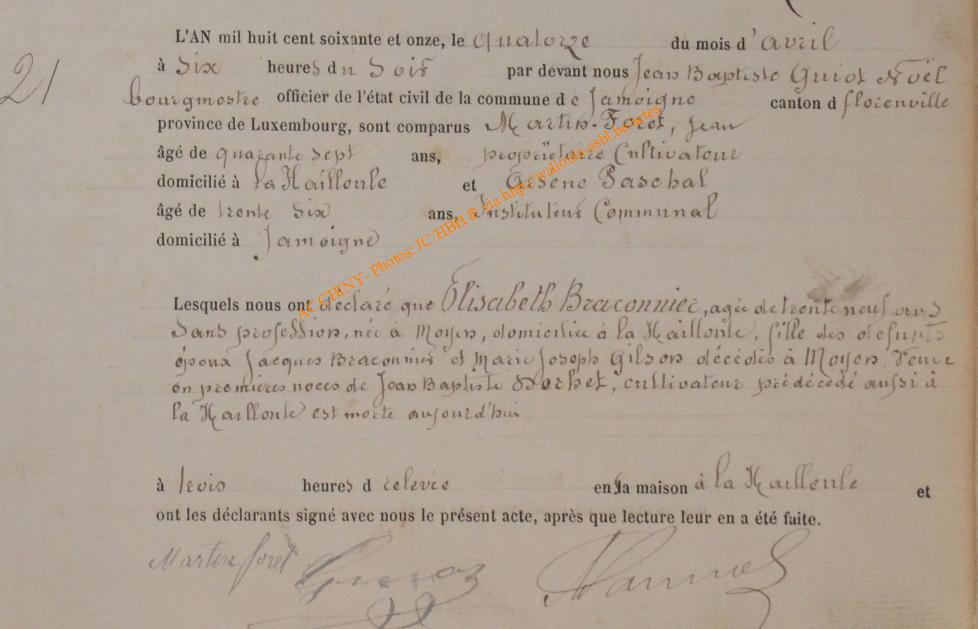 21
L'AN mil huit cent soixante et onze, le quatorze du mois d'avril
à six heures du soir par devant nous Jean Baptiste Guiot Noël
bourgmestre officier de l'état civil de la commune de Jamoigne canton d florenville
province de Luxembourg, sont comparus Martin-Foret, Jean
âgé de quarante sept ans, propriétaire Cultivateur
domicilié à la Hailleule et Arsène Paschal
âgé de trente six ans, Instituteur Communal
domicilié à Jamoigne
AC CHINY - Photos: JC/HBH © via http://wallonia-asbl
Lesquels nous ont déclaré que Élisabeth Braconnier, agée de trente neuf ans
Sans profession, née à Moyen, domiciliée à la Hailleule, fille des défunts
époux Jacques Braconnier et Marie Joseph Gilson décédés à Moyen, Veuve
en premières noces de Jean Baptiste cultivateur prédécédé aussi à
la Hailleule est morte aujourd'hui
à trois heures d relevée en sa maison à la Hailleule et
ont les déclarants signé avec nous le présent acte, après que lecture leur en a été faite.
Martin foret